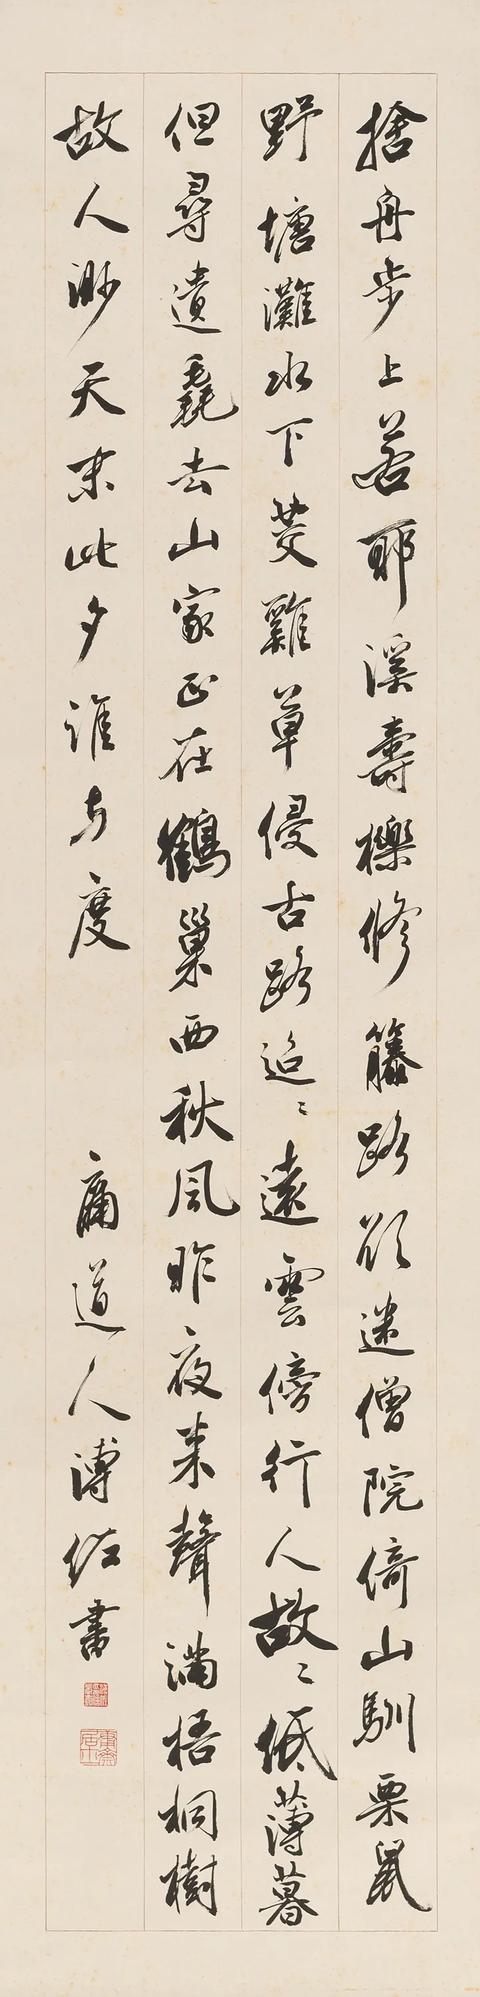 捨舟步上若耶溪壽櫟修籐路欲迷僧院倚山馴栗鼠
野塘灘水下茭雞草侵古路迢〻遠雲傍行人故〻低薄暮
但尋遺毳去山家正在鶴巢西秋風昨夜来聲滿梧桐樹
故人渺天末此夕誰与度
庸道人溥佐書